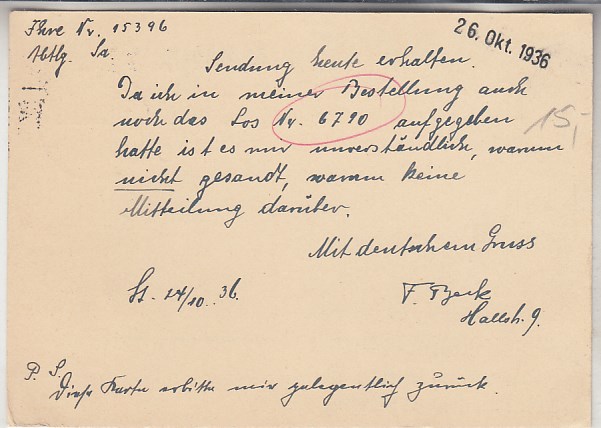 Ihre Nr. 15396
Abtlg. Sa
26. Okt. 1936
Sendung heute erhalten.
Da ich in meiner Bestellung auch
noch das Los Nr. 6790 aufgegeben
hatte ist es mir unverständlich, warum
nicht gesandt, warum keine
Mitteilung darüber.
15,-
Mit deutschem Gruss
St. 24/10. 36.
F. Beck
Hallstr. 9.
P. S.
Diese Karte erbitte mir gelegentlich zurück.